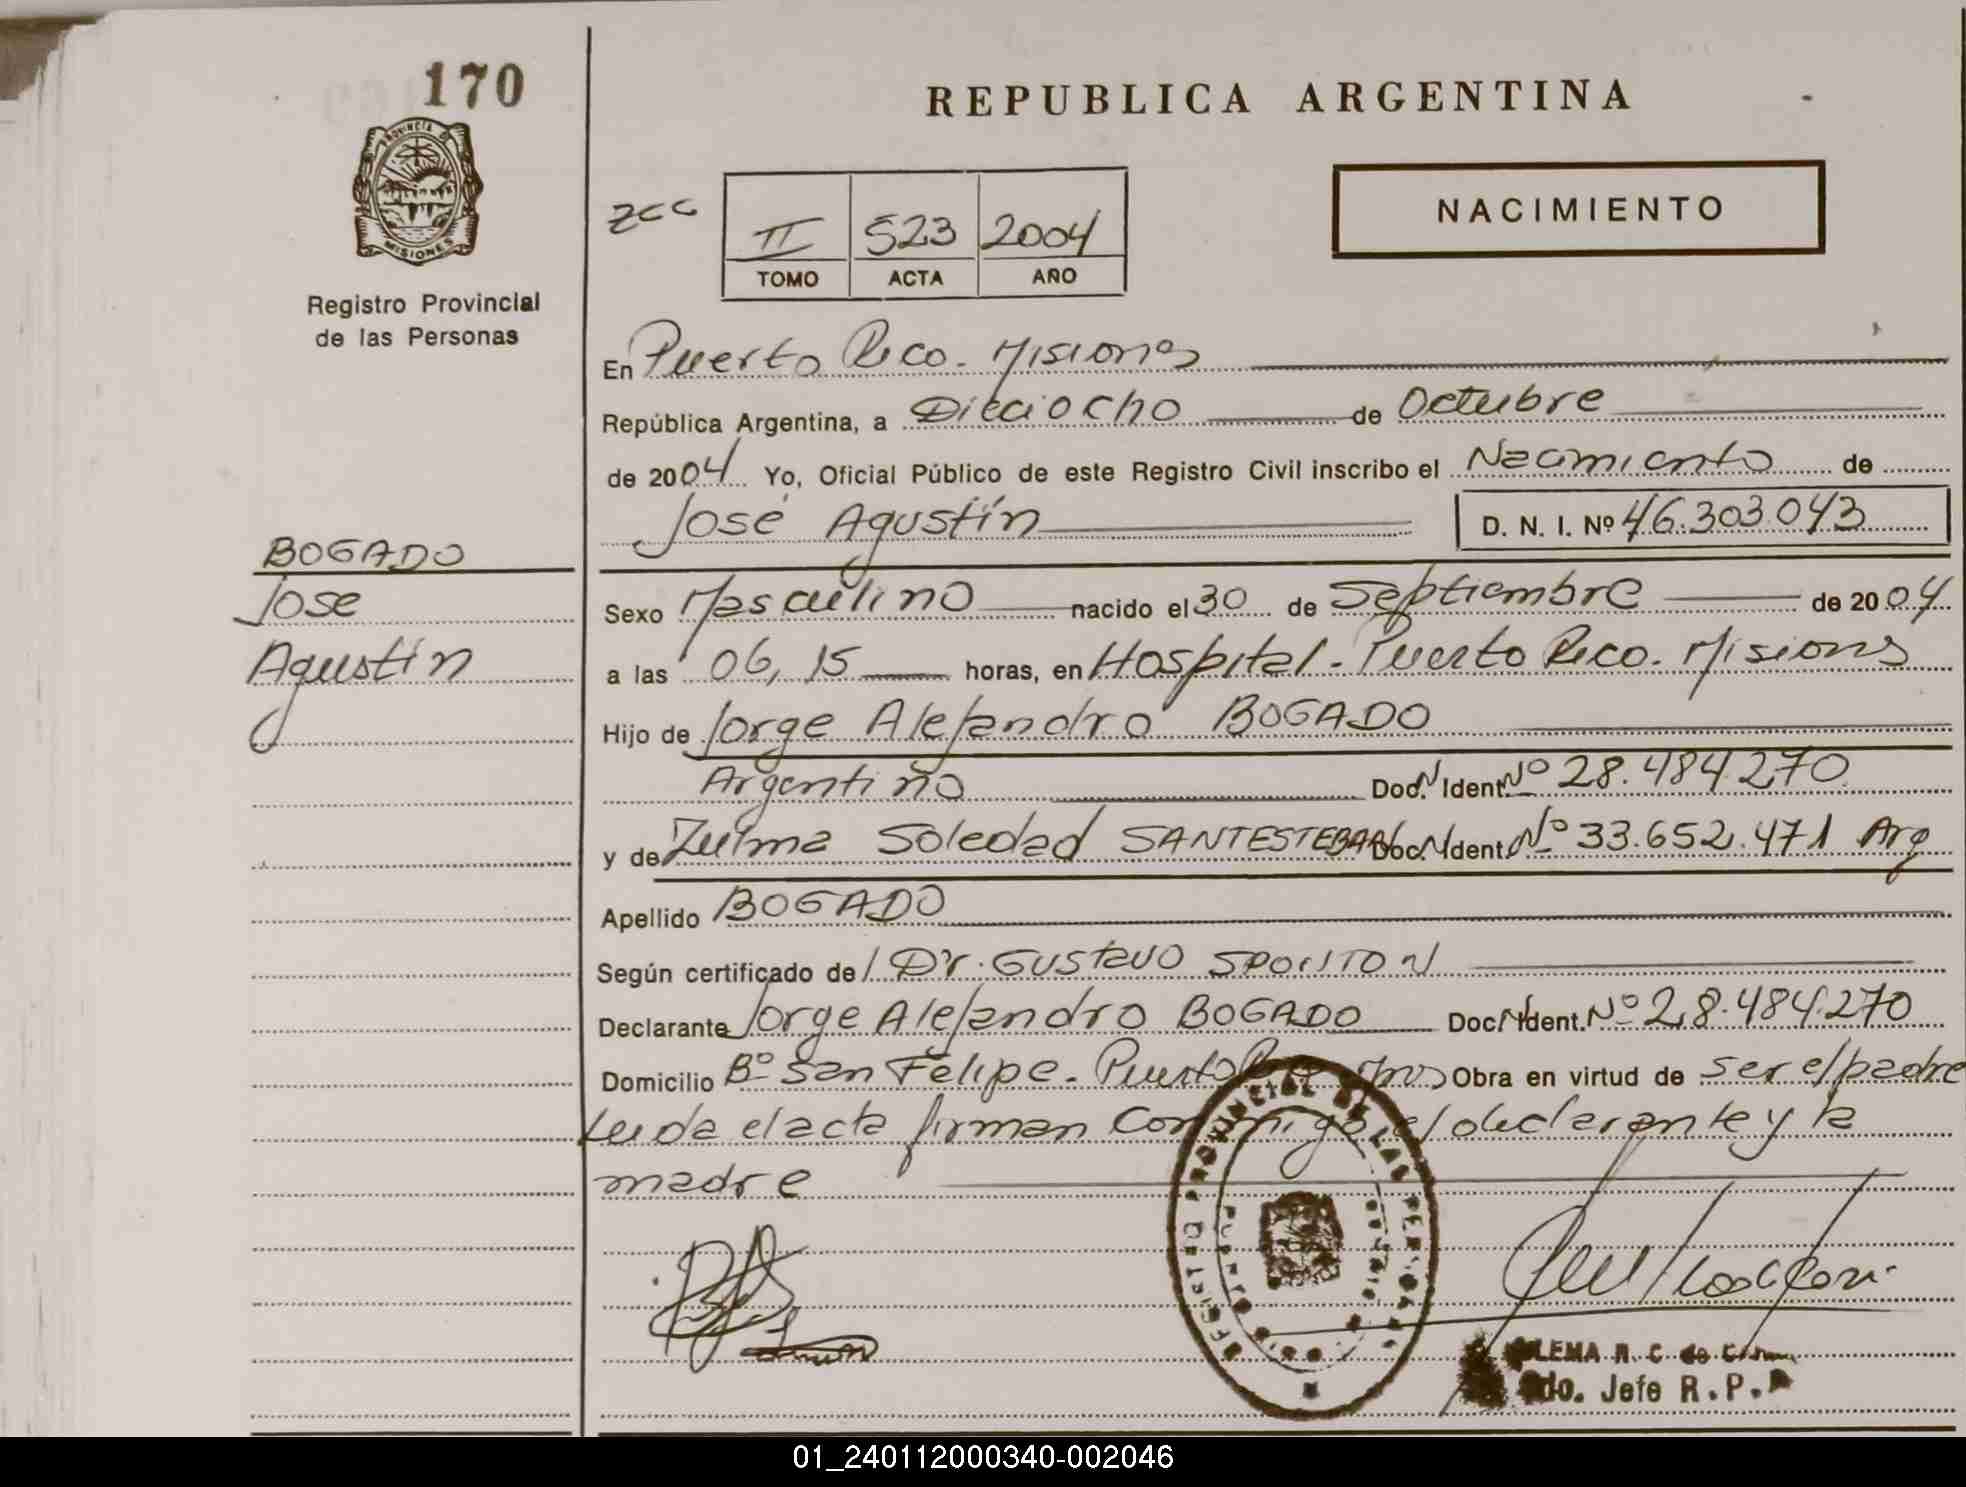 170
PROVINCIA DE
MISIONES
Registro Provincial
de las Personas
BOGADO
Jose
Agustín
REPUBLICA ARGENTINA
NACIMIENTO
ZCC
II 523 2004
TOMO ACTA AÑO
En Puerto Rico. Misiones
República Argentina, a Dieciocho de Octubre
de 2004 Yo, Oficial Público de este Registro Civil inscribo el Nacimiento de
José Agustín D. N. I. Nº 46.303.043
Sexo Masculino nacido el 30 de Septiembre de 2004
a las 06,15 horas, en Hospital - Puerto Rico. Misiones
Hijo de Jorge Alejandro BOGADO
Argentino Doc. N. Ident. Nº 28.484.270
y de Zulma Soledad SANTESTEBAN Doc. N. Ident. Nº 33.652.471 Arg
Apellido BOGADO
Según certificado del Dr. Gustavo
Declarante Jorge Alejandro BOGADO Doc. N. Ident. Nº 28.484.270
Domicilio Bº San Felipe. Puerto Obra en virtud de ser el padre
Leida el acta firman conmigo el declarante y la
madre
REGISTRO PROVINCIAL DE LAS PERSONAS
PUERTO RICO
LEMA R. C. de
Jefe R. P. P
01_240112000340-002046